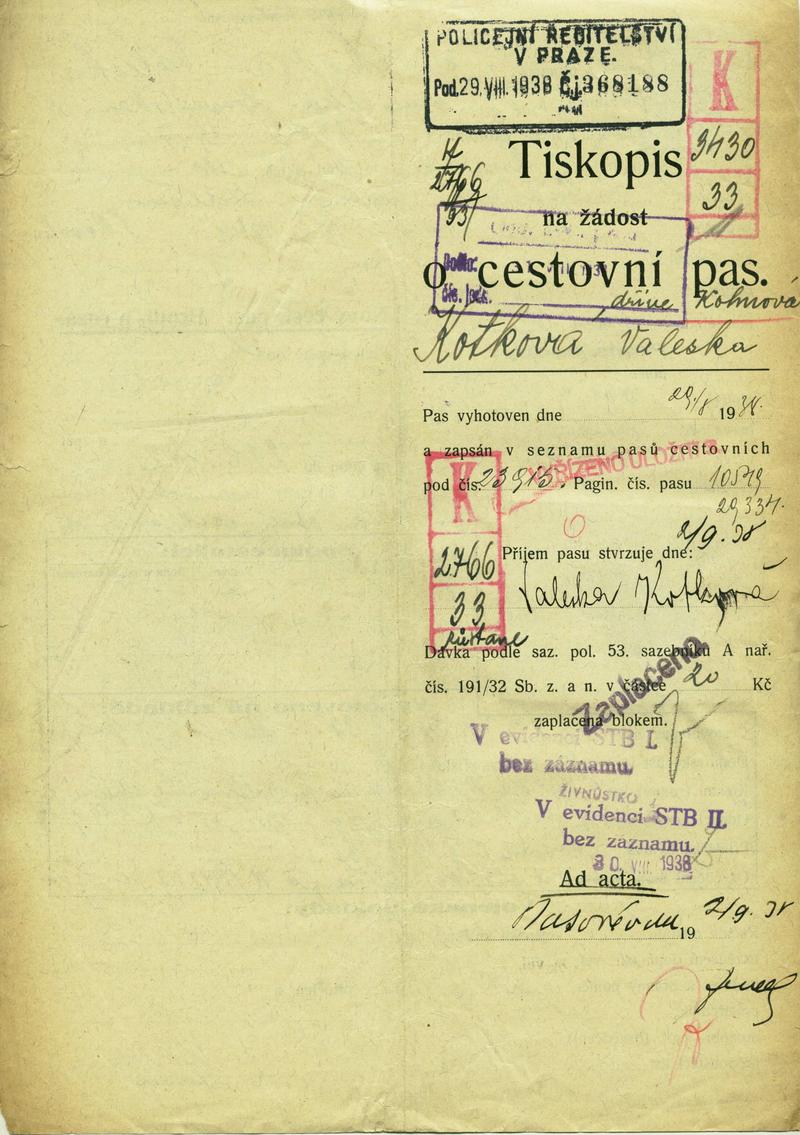 POLICEJNÍ ŘEDITELSTVÍ
V PRAZE.
Pod. 29.VIII.1938 Č.j. 368188
K
3430
33
2766
33
Tiskopis
na žádost
o cestovní pas.
Došlo:
dříve Kohnová
Kotková Valeska
Pas vyhotoven dne 29/8 1938.
a zapsán v seznamu pasů cestovních
VYŘÍZENO ULOŽIT
pod čís. 23915. Pagin. čís. pasu 10549
29334.
K
2766
33
Příjem pasu stvrzuje dne: 2/9. 38
Valeska Kotková
zůstane
Dávka podle saz. pol. 53. sazebníku A nař.
čís. 191/32 Sb. z. a n. v částce 20 Kč
zaplacena blokem.
Zaplacena
V evidenci STB I.
bez záznamu.
ŽIVNŮSTKO
V evidenci STB II.
bez záznamu.
30. VIII 1938
Ad acta.
19 2/9. 38